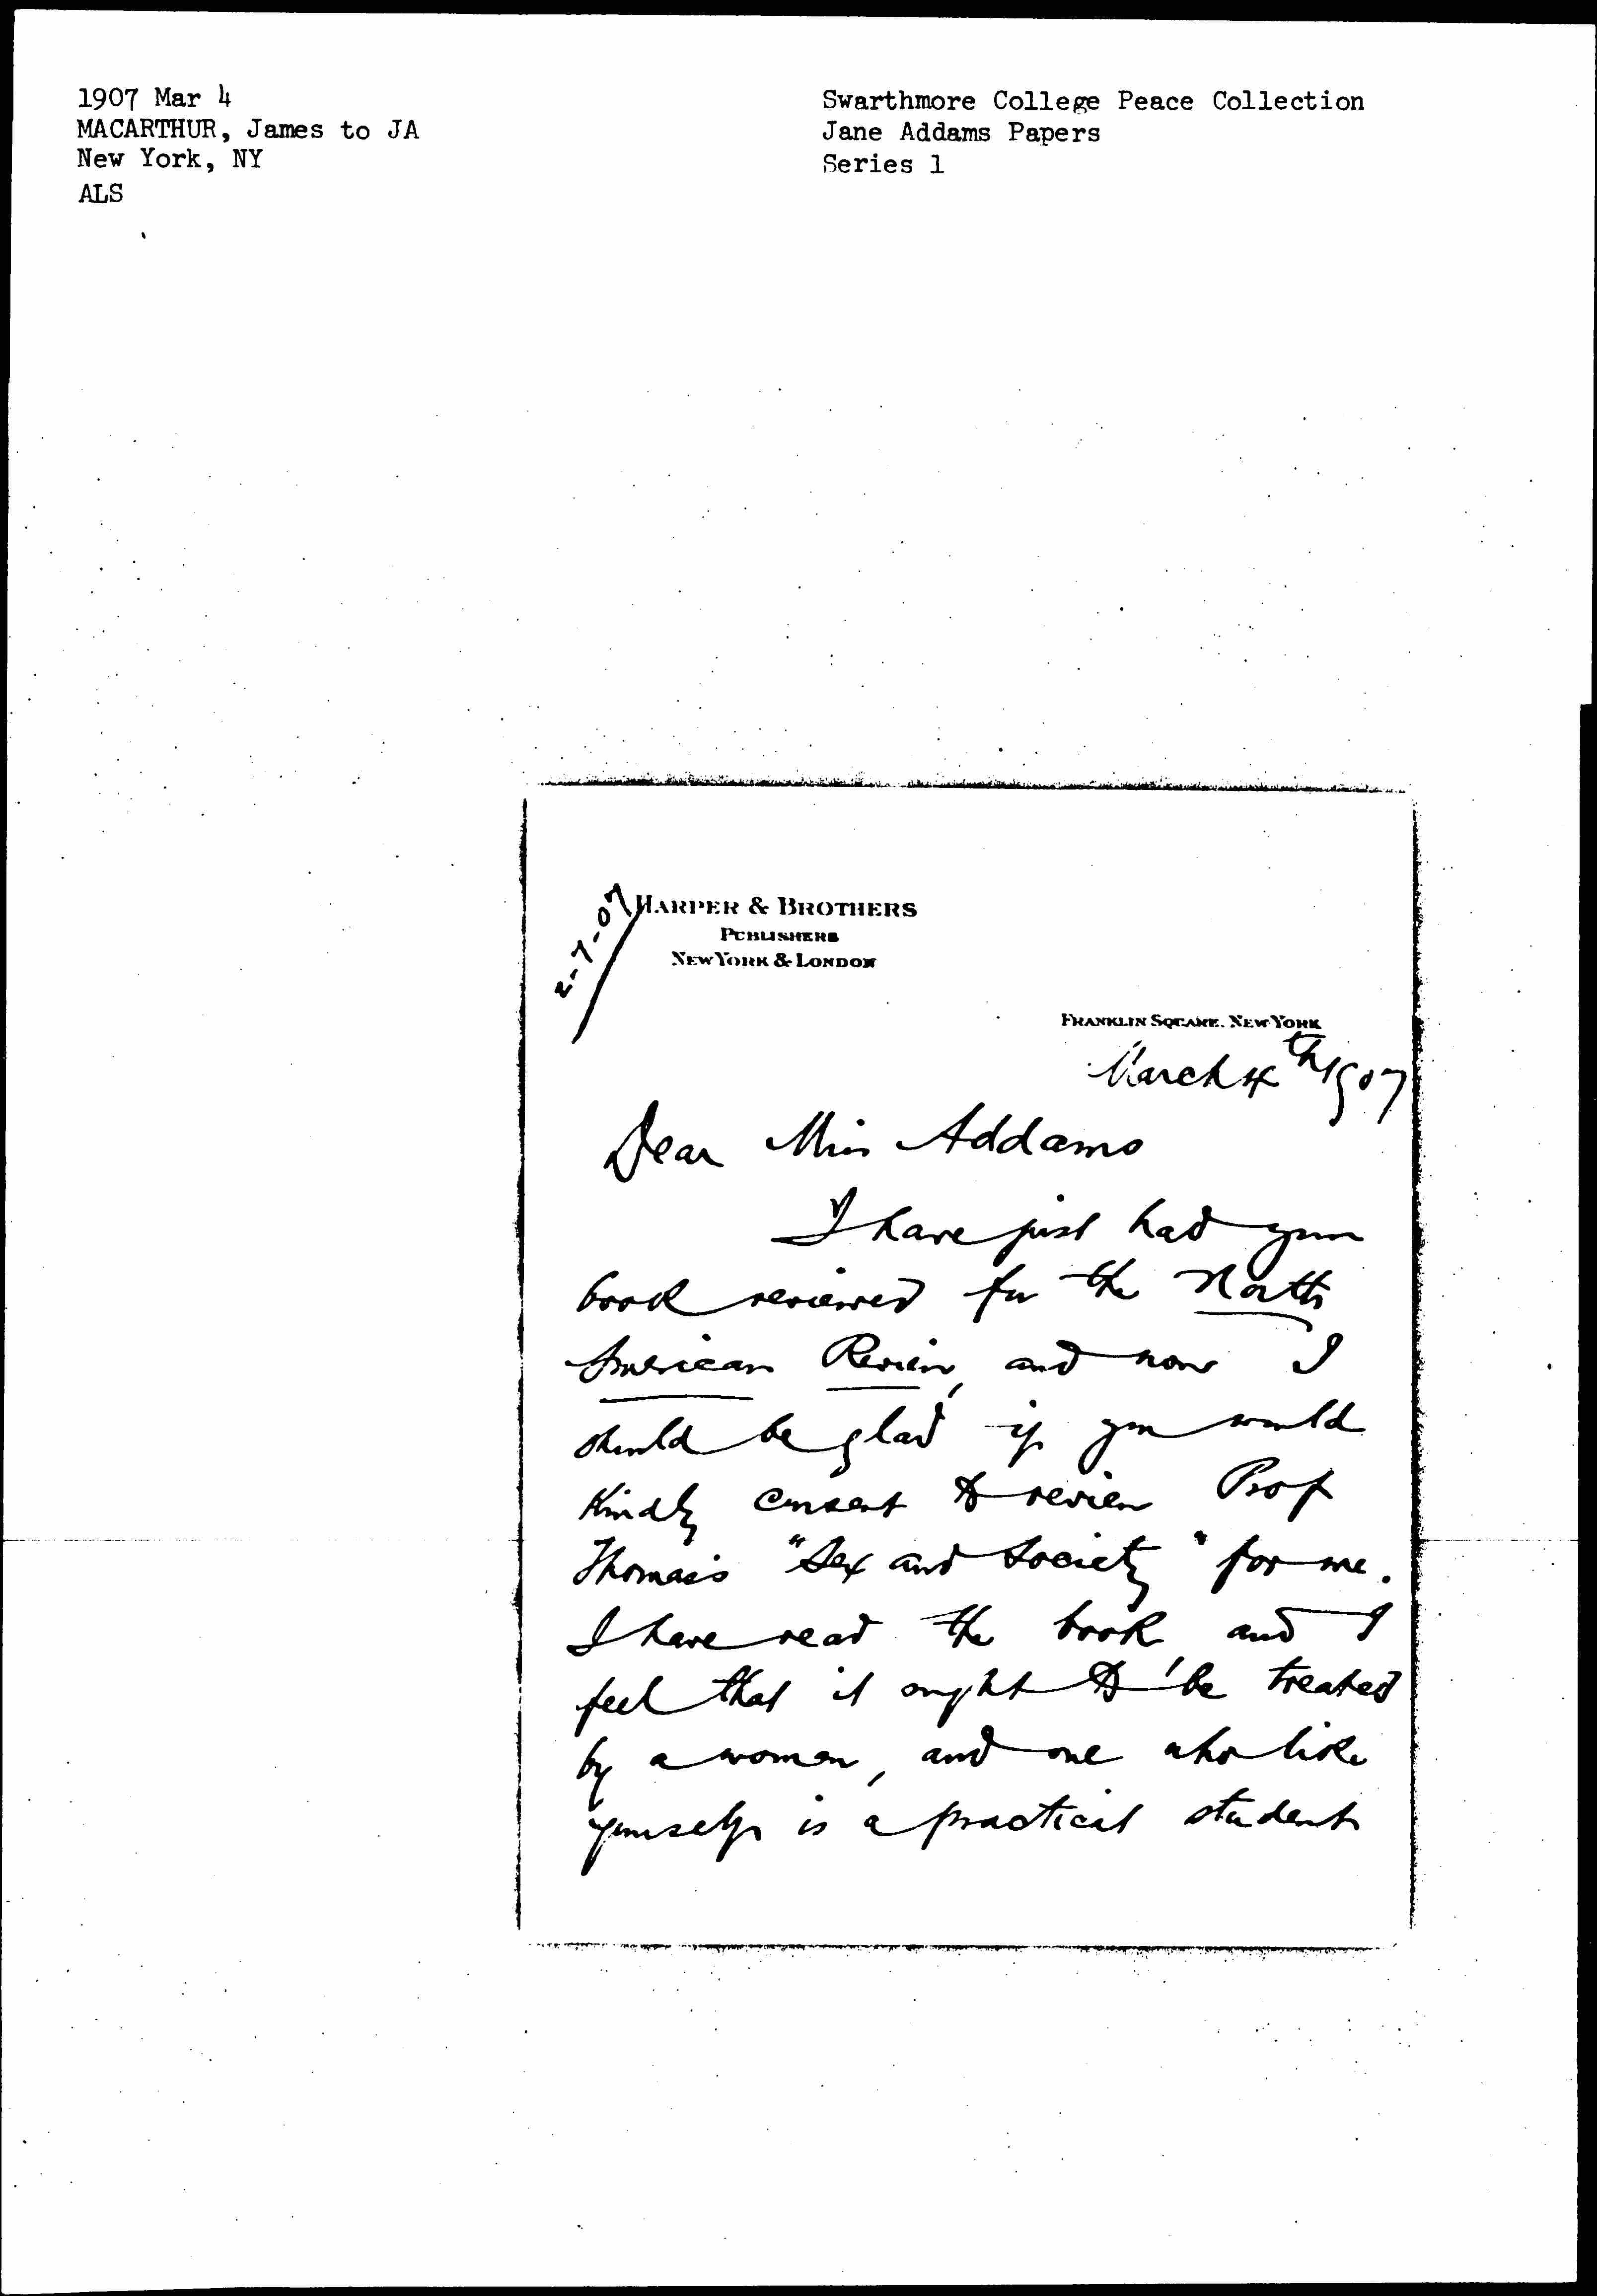 1907 Mar 4
MACARTHUR, James to JA
New York, NY
ALS
Swarthmore College Peace Collection
Jane Addams Papers
Series 1
2-7-07
HARPER & BROTHERS
PUBLISHERS
NEW YORK & LONDON
FRANKLIN SQUARE, NEW YORK
March 4th 1907
Dear Miss Addams
I have just had your
book reviewed for the North
American Review, and now I
should be glad if you would
kindly consent to review Prof
Thomas's "Sex and Society" for me.
I have read the book and I
feel that it ought to be treated
by a woman, and one who like
yourself is a practical student